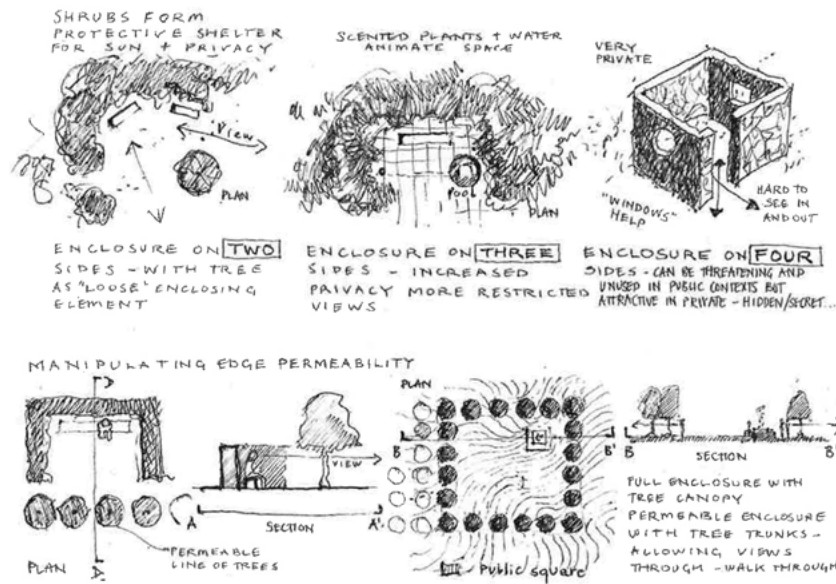 SHRUBS FORM
PROTECTIVE SHELTER
FOR SUN + PRIVACY
View
PLAN
ENCLOSURE ON TWO
SIDES - WITH TREE
AS "LOOSE" ENCLOSING
ELEMENT
SCENTED PLANTS + WATER
ANIMATE SPACE
POOL
PLAN
ENCLOSURE ON THREE
SIDES - INCREASED
PRIVACY MORE RESTRICTED
VIEWS
VERY
PRIVATE
"WINDOWS"
HELP
HARD TO
SEE IN
AND OUT
ENCLOSURE ON FOUR
SIDES - CAN BE THREATENING AND
UNUSED IN PUBLIC CONTEXTS BUT
ATTRACTIVE IN PRIVATE - HIDDEN/SECRET...
MANIPULATING EDGE PERMEABILITY
A
PLAN
PERMEABLE
LINE OF TREES
VIEW
A
SECTION
A'
PLAN
B
B'
Public square
B
B'
SECTION
FULL ENCLOSURE WITH
TREE CANOPY
PERMEABLE ENCLOSURE
WITH TREE TRUNKS -
ALLOWING VIEWS
THROUGH - WALK THROUGH